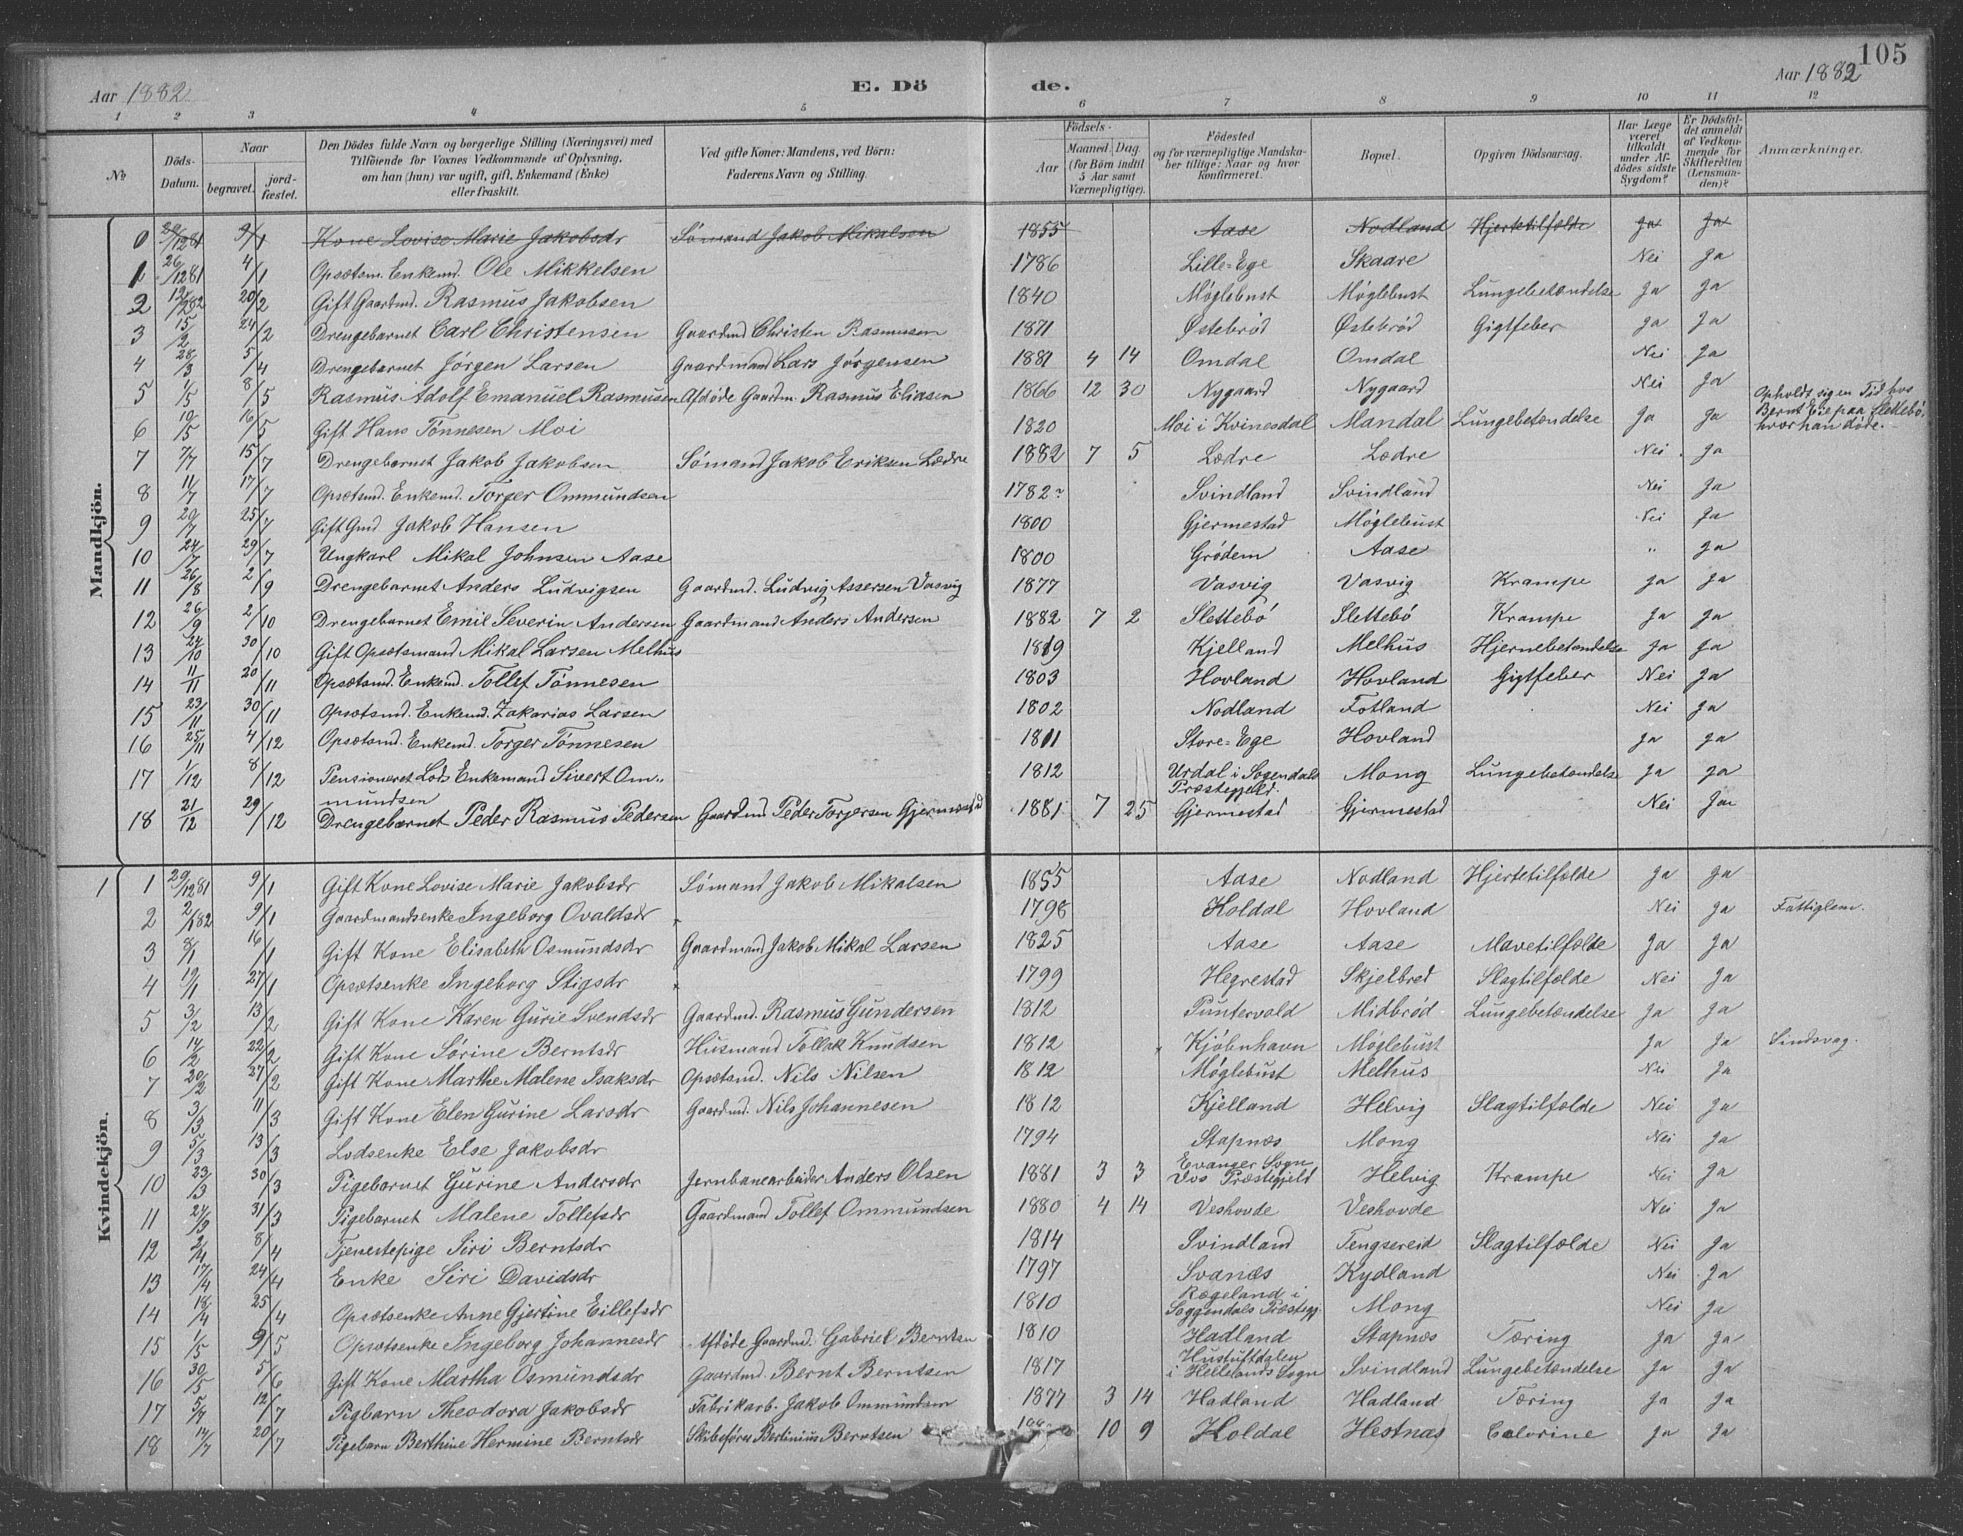 105
Aar 1882 E. Dö de. Aar 1882
1 2 3 4 5 6 7 8 9 10 11 12
No Döds-Datum. Naar begravet. jordfæstet. Den Dödes fulde Navn og borgerlige Stilling (Næringsvei) med Tilföiende for Voxnes Vedkommende af Oplysning, om han (hun) var ugift, gift, Enkemand (Enke) eller fraskilt. Ved gifte Koner: Mandens, ved Börn: Faderens Navn og Stilling. Födsels- Aar Maaned. Dag. (for Börn indtil 5 Aar samt Værnepligtige). Födested og for værnepligtige Mandskaber tillige: Naar og hvor konfirmeret. Bopæl. Opgiven Dödsaarsag. Har Læge været tilkaldt under Afdödes sidste Sygdom? Er Dödsfaldet anmeldt af Vedkommende for Skifteretten (Lensmanden)? Anmærkninger.
Mandkjön.
0 29/12 81 9/1 Kone Lovise Marie Jakobsdr Sømand Jakob Mikalsen 1855 Aase Nodland Hjertetilfælde Ja Ja
1 26/12 81 4/1 Opsætsm. Enkemd. Ole Mikkelsen 1786 Lille-Ege Skaare Nei Ja
2 20/2 Gift Gaardmd. Rasmus Jakobsen 1840 Møglebust Møglebust Lungebetændelse Ja Ja
3 15/2 24/2 Drengebarnet Carl Christensen Gaardmd Christen Rasmusen 1871 Østebrød Østebrød Gigtfeber Ja Ja
4 28/3 5/4 Drengebarnet Jørgen Larsen Gaardmand Lars Jørgensen 1881 4 14 Omdal Omdal Nei Ja
5 1/5 8/5 Rasmus Adolf Emanuel Rasmusen Afdöde Gaardm. Rasmus Eliasen 1866 12 30 Nygaard Nygaard Nei Ja Opholdt sig en Tid hos Bernt Ege paa Slettebö, hvor han döde.
6 10/5 16/5 Gift Hans Tønnesen Moi 1820 Moi i Kvinesdal Mandal Lungebetændelse Ja Ja
7 7/7 15/7 Drengebarnet Jakob Jakobsen Sømand Jakob Eriksen Lædre 1882 7 5 Lædre Lædre Nei Ja
8 11/7 17/7 Opsætsmd. Enkemd. Torger Ommundsen 1782 Svindland Svindland Nei Ja
9 20/7 25/7 Gift Gmd Jakob Hansen 1800 Gjermestad Møglebust Nei Ja
10 24/7 29/7 Ungkarl Mikal Johnsen Aase 1800 Grødem Aase " Ja
11 26/8 2/9 Drengebarnet Anders Ludvigsen Gaardmd. Ludvig Assersen Vasvig 1877 Vasvig Vasvig Krampe Ja Ja
12 26/9 2/10 Drengebarnet Emil Severin Andersen Gaardmand Anders Andersen 1882 7 2 Slettebö Slettebö Krampe Ja Ja
13 24/10 30/10 Gift Opsætsmand Mikal Larsen Melhus 1819 Kjelland Melhus Hjernebetændelse Ja Ja
14 11/11 20/11 Opsætsmd. Enkemd. Tollef Tønnesen 1803 Hovland Hovland Gigtfeber Nei Ja
15 23/11 30/11 Opsætsmd. Enkemd. Zakarias Larsen 1802 Nodland Fotland Nei Ja
16 25/11 4/12 Opsætsmd. Enkemd. Torger Tønnesen 1811 Store-Ege Hovland Ja Ja
17 1/12 8/12 Pensioneret Lods Enkemand Sivert Ommundsen 1812 Urdal i Sogendals Præstegjeld. Mong Lungebetændelse Ja Ja
18 21/12 29/12 Drengebarnet Peder Rasmus Pedersen Gaardmd Peder Torgersen Gjermestad 1881 7 25 Gjermestad Gjermestad Nei Ja
Kvindekjön.
1 1 29/12 81 9/1 Gift Kone Lovise Marie Jakobsdr Sømand Jakob Mikalsen 1855 Aase Nodland Hjertetilfælde Ja Ja
2 2/1 82 9/1 Gaardmandsenke Ingeborg Ovaldsdr 1796 Koldal Hovland Nei Ja Fattiglem.
3 8/1 16/1 Gift Kone Elisabeth Osmundsdr Gaardmand Jakob Mikal Larsen 1825 Aase Aase Mavetilfælde Ja Ja
4 19/1 27/1 Opsætsenke Ingeborg Stigsdr 1799 Hegrestad Skjelbred Slagtilfælde Nei Ja
5 3/2 13/2 Gift Kone Karen Gurie Svendsdr Gaardmd. Rasmus Gundersen 1812 Puntervold Midbrød Lungebetændelse Ja Ja
6 14/2 22/2 Gift Kone Sørine Berntsdr Husmand Tollak Knudsen 1812 Kjøbenhavn Møglebust Ja Ja Sindsvag.
7 20/2 27/2 Gift Kone Marthe Malene Isaksdr Opsætsmd. Nils Nilsen 1812 Møglebust Melhus Nei Ja
8 3/3 11/3 Gift Kone Elen Gurine Larsdr Gaardmd. Nils Johannesen 1812 Kjelland Helvig Slagtilfælde Nei Ja
9 5/3 13/3 Lodsenke Else Jakobsdr 1794 Stapnæs Mong Nei Ja
10 23/3 30/3 Pigebarnet Gurine Andersdr Jernbanearbeider Anders Olsen 1881 3 3 Evanger Sogn Vos Præstegjeld Helvig Krampe Nei Ja
11 24/3 31/3 Pigebarnet Malene Tollefsdr Gaardmand Tollef Ommundsen 1880 4 14 Veshovde Veshovde Nei Ja
12 2/4 8/4 Tjenestepige Siri Berntsdr 1814 Svindland Tengsereid Slagtilfælde Nei Ja
13 17/4 24/4 Enke Siri Davidsdr 1797 Svanæs Kydland Nei Ja
14 18/4 25/4 Opsætsenke Anne Gjertine Eillefsdr 1810 Rægeland i Soggendals Præstegj. Mong Nei Ja
15 1/5 9/5 Opsætsenke Ingeborg Johannesdr Afdöde Gaardmd. Gabriel Berntsen 1810 Hadland Stapnæs Tæring Ja Ja
16 30/5 5/6 Gift Kone Martha Osmundsdr Gaardmd. Bernt Berntsen 1817 Hustuftdalen i Hellelands Sogn Svindland Lungebetændelse Ja Ja
17 5/7 12/7 Pigbarn Theodora Jakobsdr Fabrikarb. Jakob Ommundsen 1877 3 14 Hadland Hadland Tæring Ja Ja
18 14/7 20/7 Pigebarn Berthine Hermine Berntsdr Skibsfører Berlinius Berntsen 10 9 Koldal Hestnæs Colerine Ja Ja